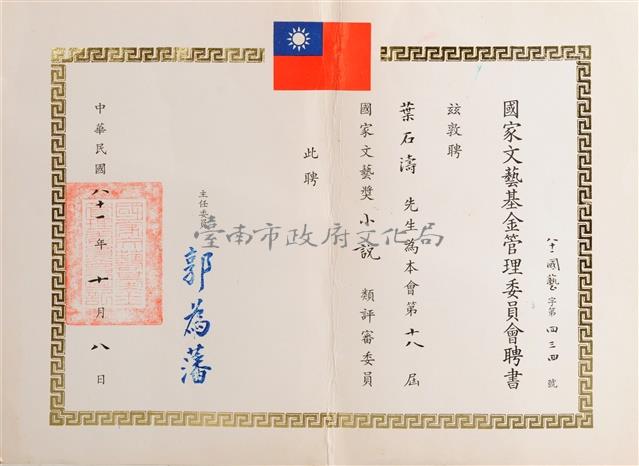 國家文藝基金管理委員會聘書
八十一國藝字第四三四號
茲敦聘
葉石濤先生為本會第十八屆
國家文藝獎小說類評審委員
此聘
主任委員郭為藩
中華民國八十一年十月八日
臺南市政府文化局